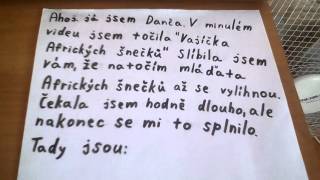 Ahoj já jsem Danča. V minulém
videu jsem točila "Vajíčka
Afrických šnečků" Slíbila jsem
vám, že natočím mláďata
Afrických šnečků až se vylíhnou.
Čekala jsem hodně dlouho, ale
nakonec se mi to splnilo.
Tady jsou: